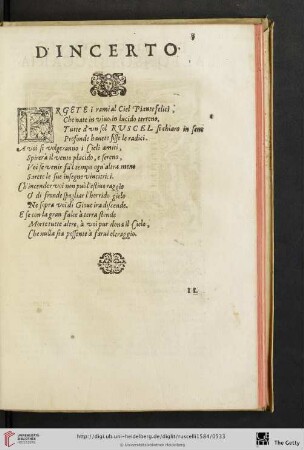 D'INCERTO.
ERGETE i rami al Ciel Piante felici,
Che nate in viuo, in lucido terreno,
Tutte d'un sol RVSCEL sì chiaro in seno
Profonde haueti fisse le radici.
A voi si volgeranno i Cieli amici,
Spirerà il vento placido, e sereno,
Voi le venir fa'l tempo ogn'altra meno
Sarete le sue insegne vincitrici.
Ch'incender voi non può l'estiuo raggio
O di fronde spogliar l'horrido gielo
Ne sopra voi di Gioue ira discende.
E se con la gran falce à terra stende
Morte tutto altro, à voi pur dona il Cielo,
Che nulla sia possente à farui oltraggio.
IL
http://digi.ub.uni-heidelberg.de/diglit/ruscelli1584/0533
© Universitätsbibliothek Heidelberg
UNIVERSITÄTS-
BIBLIOTHEK
HEIDELBERG
The Getty